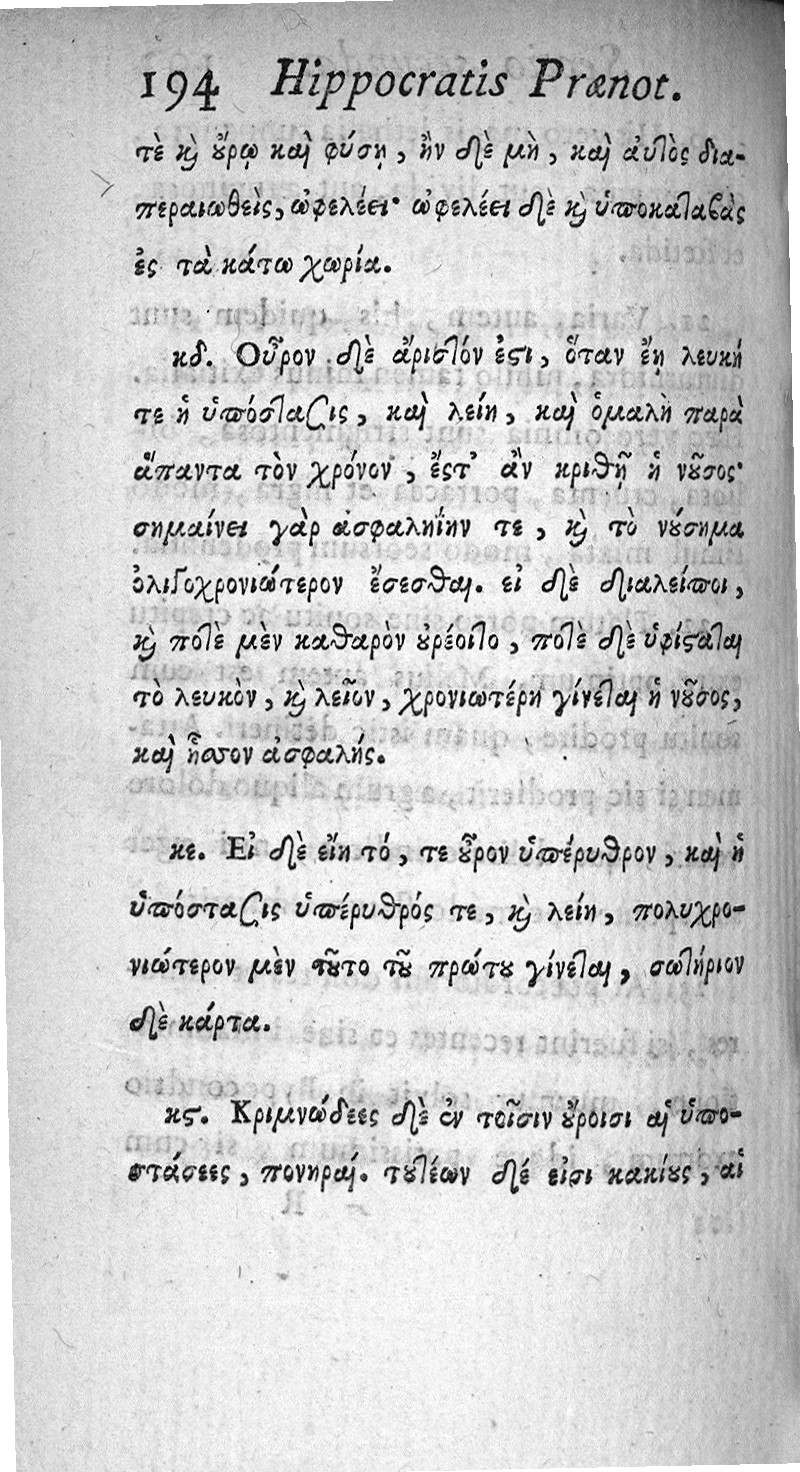 194 Hippocratis Prænot.
τὲ ϗ̀ ὔρῳ καὶ φύσῃ, ἢν δὲ μὴ, καὶ ἀυτὸς δια-
περαιωθεὶς, ὠφελέει· ὠφελέει δὲ ϗ̀ ὑποκαταβὰς
ἐς τὰ κάτω χωρία.
κδ. Οὖρον δὲ ἄριστόν ἐστι, ὅταν ἔῃ λευκή
τε ἡ ὑπόστασις, καὶ λείη, καὶ ὁμαλὴ παρὰ
ἅπαντα τὸν χρόνον, ἔστ' ἂν κριθῇ ἡ νȣ͂σος·
σημαίνει γὰρ ἀσφαληΐην τε, ϗ̀ τὸ νȣ́σημα
ὀλιγοχρονιώτερον ἔσεσθαι. εἰ δὲ διαλείποι,
ϗ̀ ποτὲ μὲν καθαρὸν ȣ̓ρέοιτο, ποτὲ δὲ ὑφίσταται
τὸ λευκὸν, ϗ̀ λεῖον, χρονιωτέρη γίνεται ἡ νȣ͂σος,
καὶ ἧσσον ἀσφαλής.
κε. Εἰ δὲ εἴη τό, τε ȣ̓͂ρον ὑπέρυθρον, καὶ ἡ
ὑπόστασις ὑπέρυθρός τε, ϗ̀ λείη, πολυχρο-
νιώτερον μὲν τȣ͂το τȣ͂ πρώτȣ γίνεται, σωτήριον
δὲ κάρτα.
κϛ. Κριμνώδεες δὲ ἐν τοῖσιν ȣ̓́ροισι αἱ ὑπο-
στάσεες, πονηραί. τȣτέων δέ εἰσι κακίȣς, αἱ